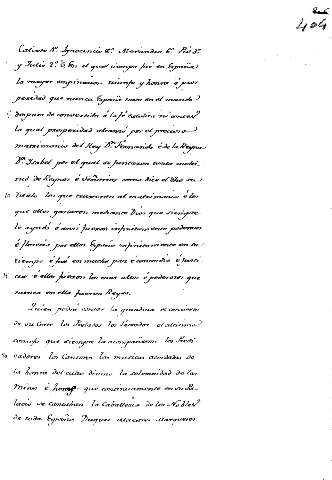 404
Calisto 3º. Ignocencio 8º. Alexandro 6º. Pio 3º.
y Julio 2º. En el qual tiempo fué en España
la mayor empinacion triunfo y honra é pros-
peridad que nunca España tuvo en el mundo
despues de convertida á la fé catolica ni antes
la qual prosperidad alcanzó por el precioso
matrimonio del Rey Dn. Fernando é de la Reyna
Dª. Isabel por el qual se juntaron tanta multi-
tud de Reynos é Señorios como dice el dho su
10
Titulo los que truxeron al matrimonio é los
que ellos ganaron mediante Dios que siempre
les ayudó é ansi fueron infinitamente poderosos
é floreció por ellos España infinitamente en su
tiempo é fué en mucha paz é concordia é justi-
15
cia é ellos fueron los mas altos é poderosos que
nunca en ella fueron Reyes.
Quien podrá contar la grandeza el concierto
de su Corte los Prelados los Letrados el altisimo
consejo que siempre la acompañaron los Predi-
20
cadores los Cantores las musicas acordadas de
la honra del culto divino la solemnidad de las
Misas é horas que continuamente en su Pa-
lacio se cantaban la Caballeria de los Nobles
de toda España Duques Maestres Marqueses